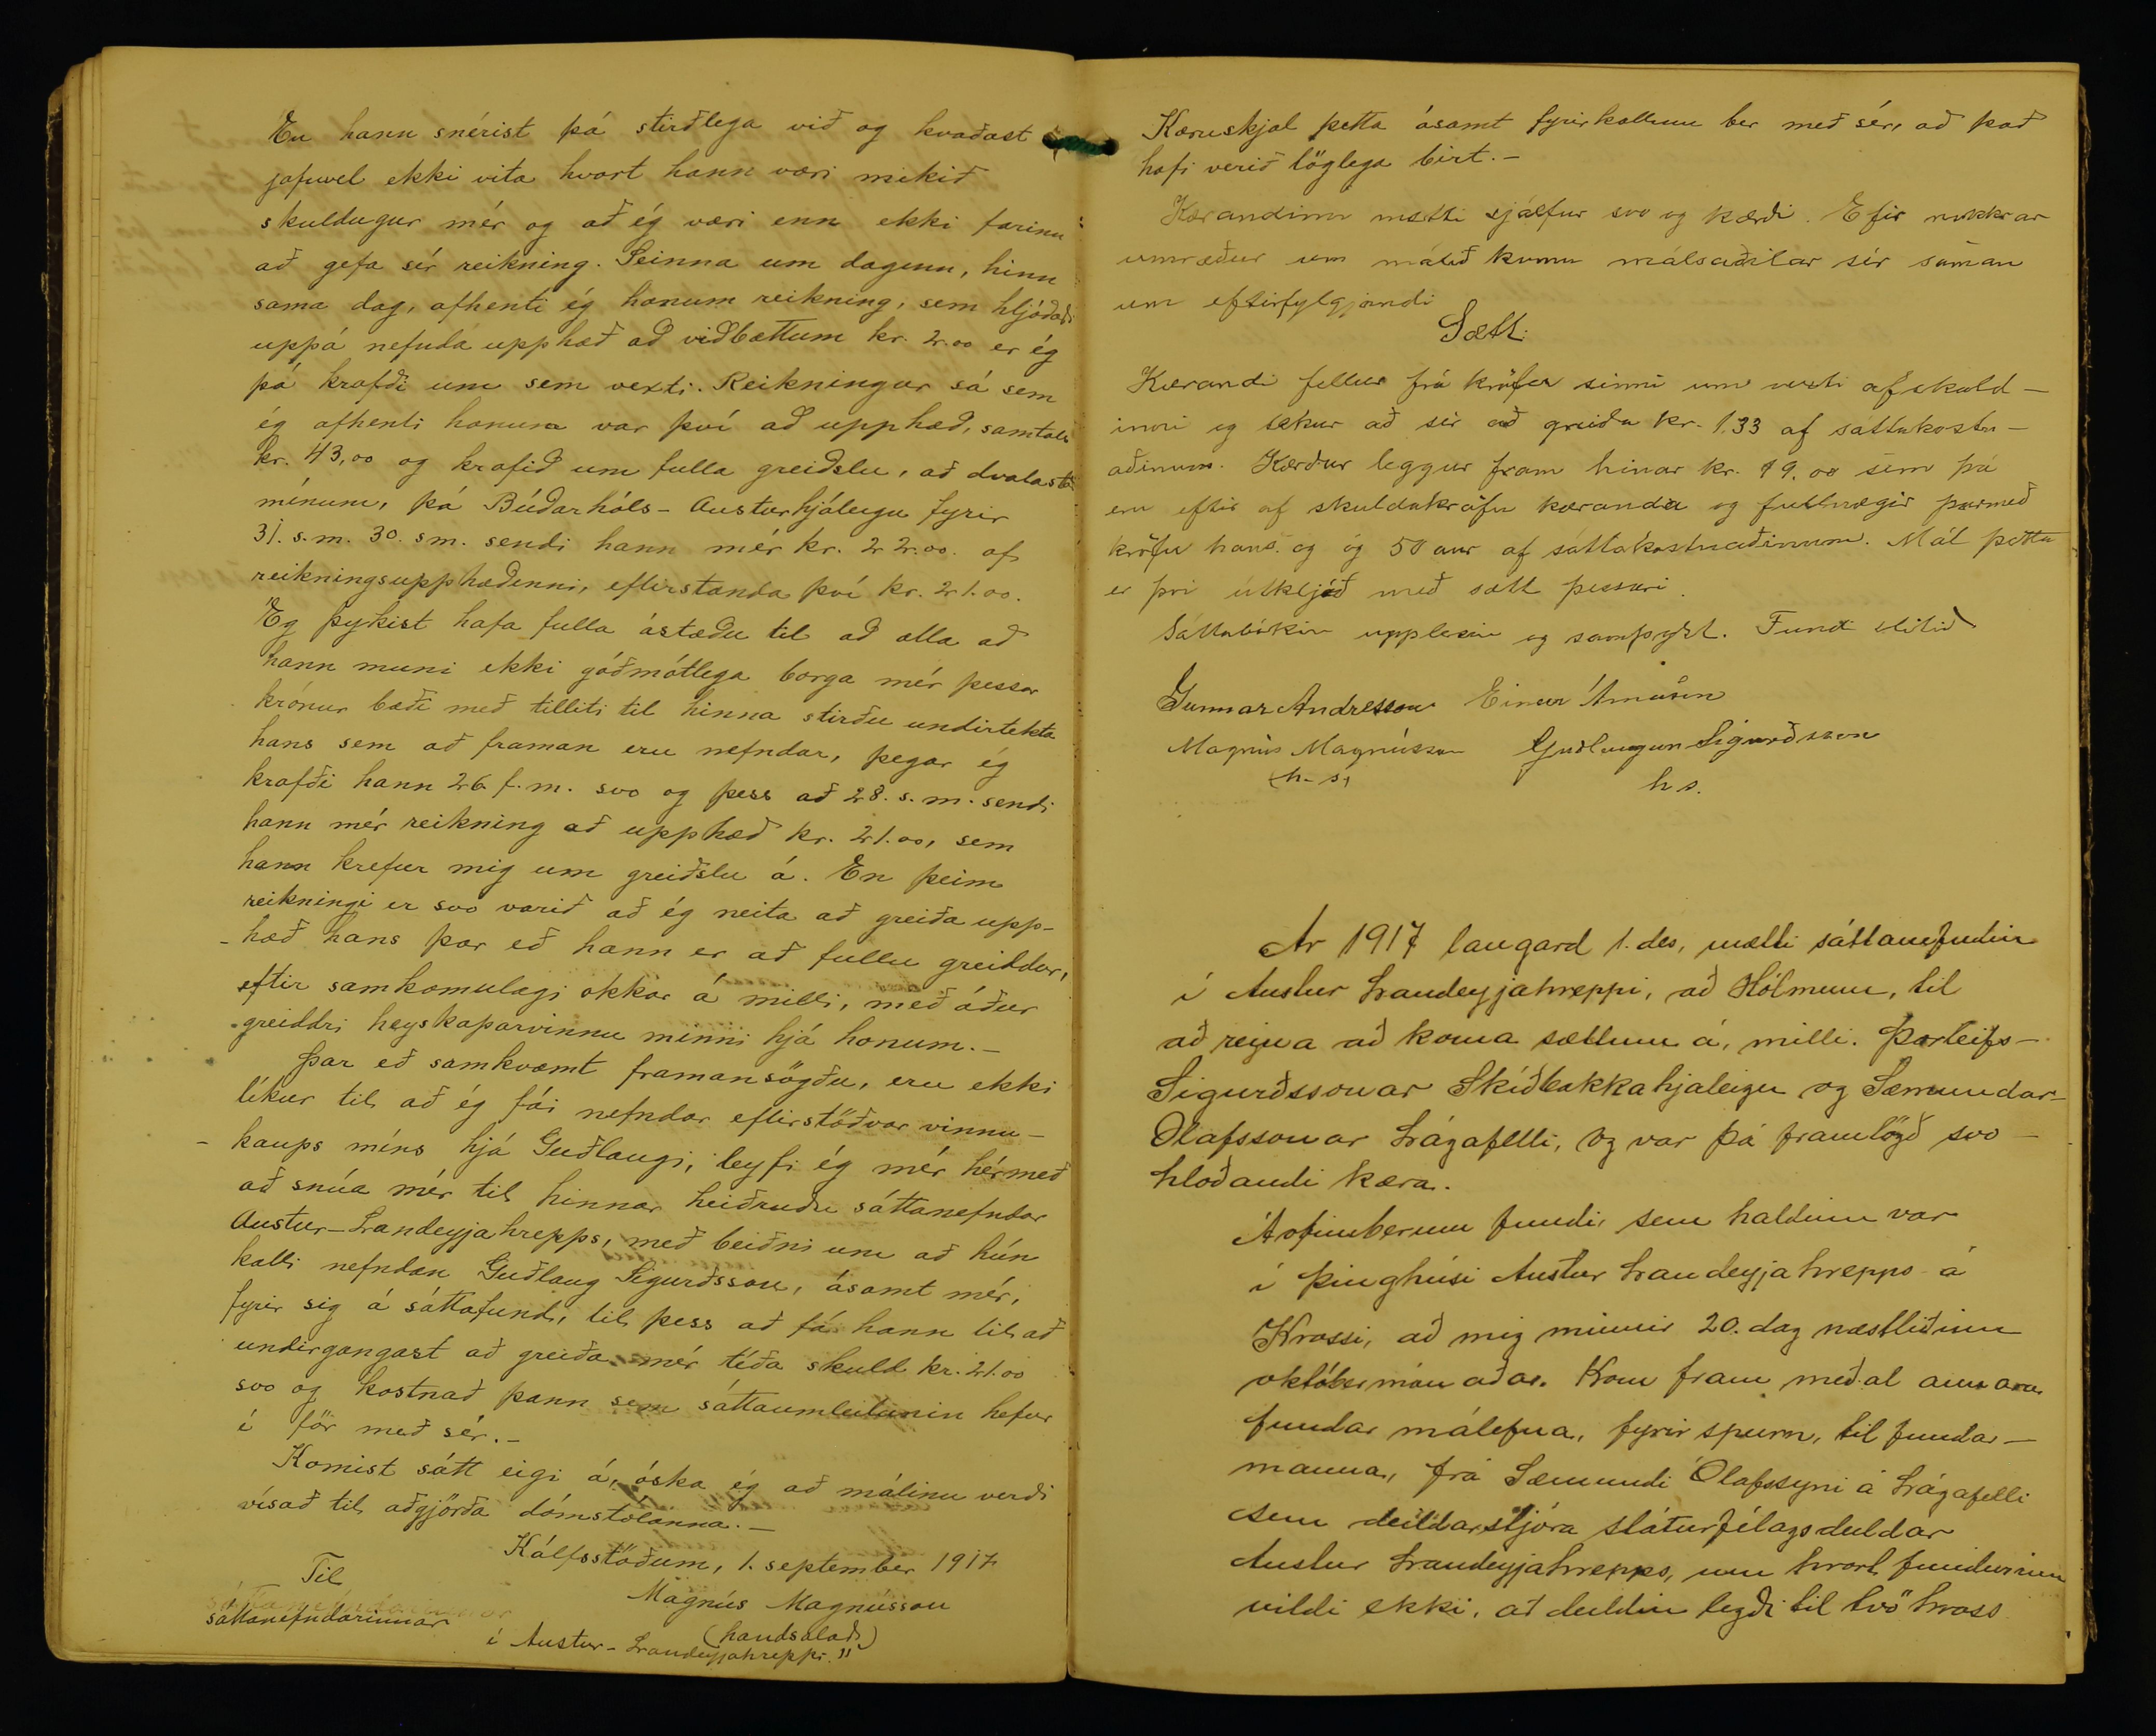 En hann snérist þá stirðlega við og kvaðast
jafnvel ekki vita hvort hann væri mikið
skuldugur mér og að ég væri enn ekki farinn
að gefa sér reikning. Seinna um daginn, hinn
sama dag, afhenti ég honum reikning, sem hljóðaði
uppá nefnda upphæð að viðbættum kr. 2.00 er ég
þá krafði um sem vexti. Reikningur sá sem
ég afhenti honum var því að upphæð, samtals
kr. 43,00 og krafið um fulla greiðslu, að dvalastað
mínum, þá Búðarhóls-Austurhjáleigu fyrir
31. s.m. 30. sm. sendi hann mér kr. 22.00. af
reikningsupphæðinni, eftirstanda því kr. 21.00.
Ég þykist hafa fulla ástæðu til að ætla að
hann muni ekki góðmótlega borga mér þessar
krónur bæði með tilliti til hinna stirðu undirtekta
hans sem að framan eru nefndar, þegar ég
krafði hann 26. f.m. svo og þess að 28. s.m. sendi
hann mér reikning að upphæð kr. 21.00, sem
hann krefur mig um greiðslu á. En þeim
reikningi er svo varið að ég neita að greiða upp-
-hæð hans þar eð hann er að fullu greiddur,
eftir samkomulagi okkar á milli, með áður
greiddri heyskaparvinnu minni hjá honum.-
Þar eð samkvæmt framansögðu, eru ekki
líkur til að ég fái nefndar eftirstöðvar vinnu-
-kaups míns hjá Guðlaugi, leyfi ég mér hérmeð
að snúa mér til hinnar heiðruðu sáttanefndar
Austur-Landeyjahrepps, með beiðni um að hún
kalli nefndan Guðlaug Sigurðsson, ásamt mér,
fyrir sig á sáttafund, til þess að fá hann til að
undirgangast að greiða mér téða skuld kr. 21.00
svo og kostnað þann sem sáttaumleitunin hefur
í för með sér.-
Komist sátt eigi á, óska ég að málinu verði
vísað til aðgjörða dómstólanna.-
Kálfsstöðum, 1. september 1917
Magnús Magnússon
(handsalað)
Til
sáttanefndarinnar
í Austur-Landeyjahreppi."
Kæruskjal þetta ásamt fyrirkallinu ber með sér, að það
hafi verið löglega birt.-
Kærandinn mætti sjálfur svo og kærði. Efir nokkrar
umræður um málið komu málsaðilar sér saman
um eftirfylgjandi
Sátt:
Kærandi fellur frá kröfu sinni um vexti af skuld-
inni og tekur að sér að greiða kr. 1.33 af sáttakostn-
aðinum. Kærður leggur fram hinar kr. 19.00 sem þá
eru eftir af skuldakröfu kæranda og fullnægir þarmeð
kröfu hans. og og 50 aur af sáttakostnaðinum. Mál þetta
er því útkljáð með sátt þessari.
Sáttabókin upplesin og samþykt. Fundi slitið
Gunnar Andrésson Einar Árnason
Magnús Magnússon Guðlaugur Sigurðsson
(h. s.) h s.
Ár 1917 laugard 1. des, mætti sáttanefndin
í Austur Landeyjahreppi, að Hólmum, til
að reyna að koma sættum á, milli. Þorleifs-
Sigurðssonar Skíðbakkahjáleigu og Sæmundar-
Ólafssonar Lágafelli, Og var þá framlögð svo-
hloðandi kæra.
Á ofinberum fundi, sem haldinn var
í þinghúsi Austur Landeyjahrepps á
Krossi, að mig minnir 20. dag næstliðinn
október mánaðar. Kom fram meðal annara
fundar málefna, fyrirspurn, til fundar-
manna, frá Sæmundi Ólafssyni á Lágafelli
sem deildarstjóra sláturfélagsdeildar
Austur Landeyjahrepps, um hvort fundurinn
vildi ekki, að deildin legði til tvö hross